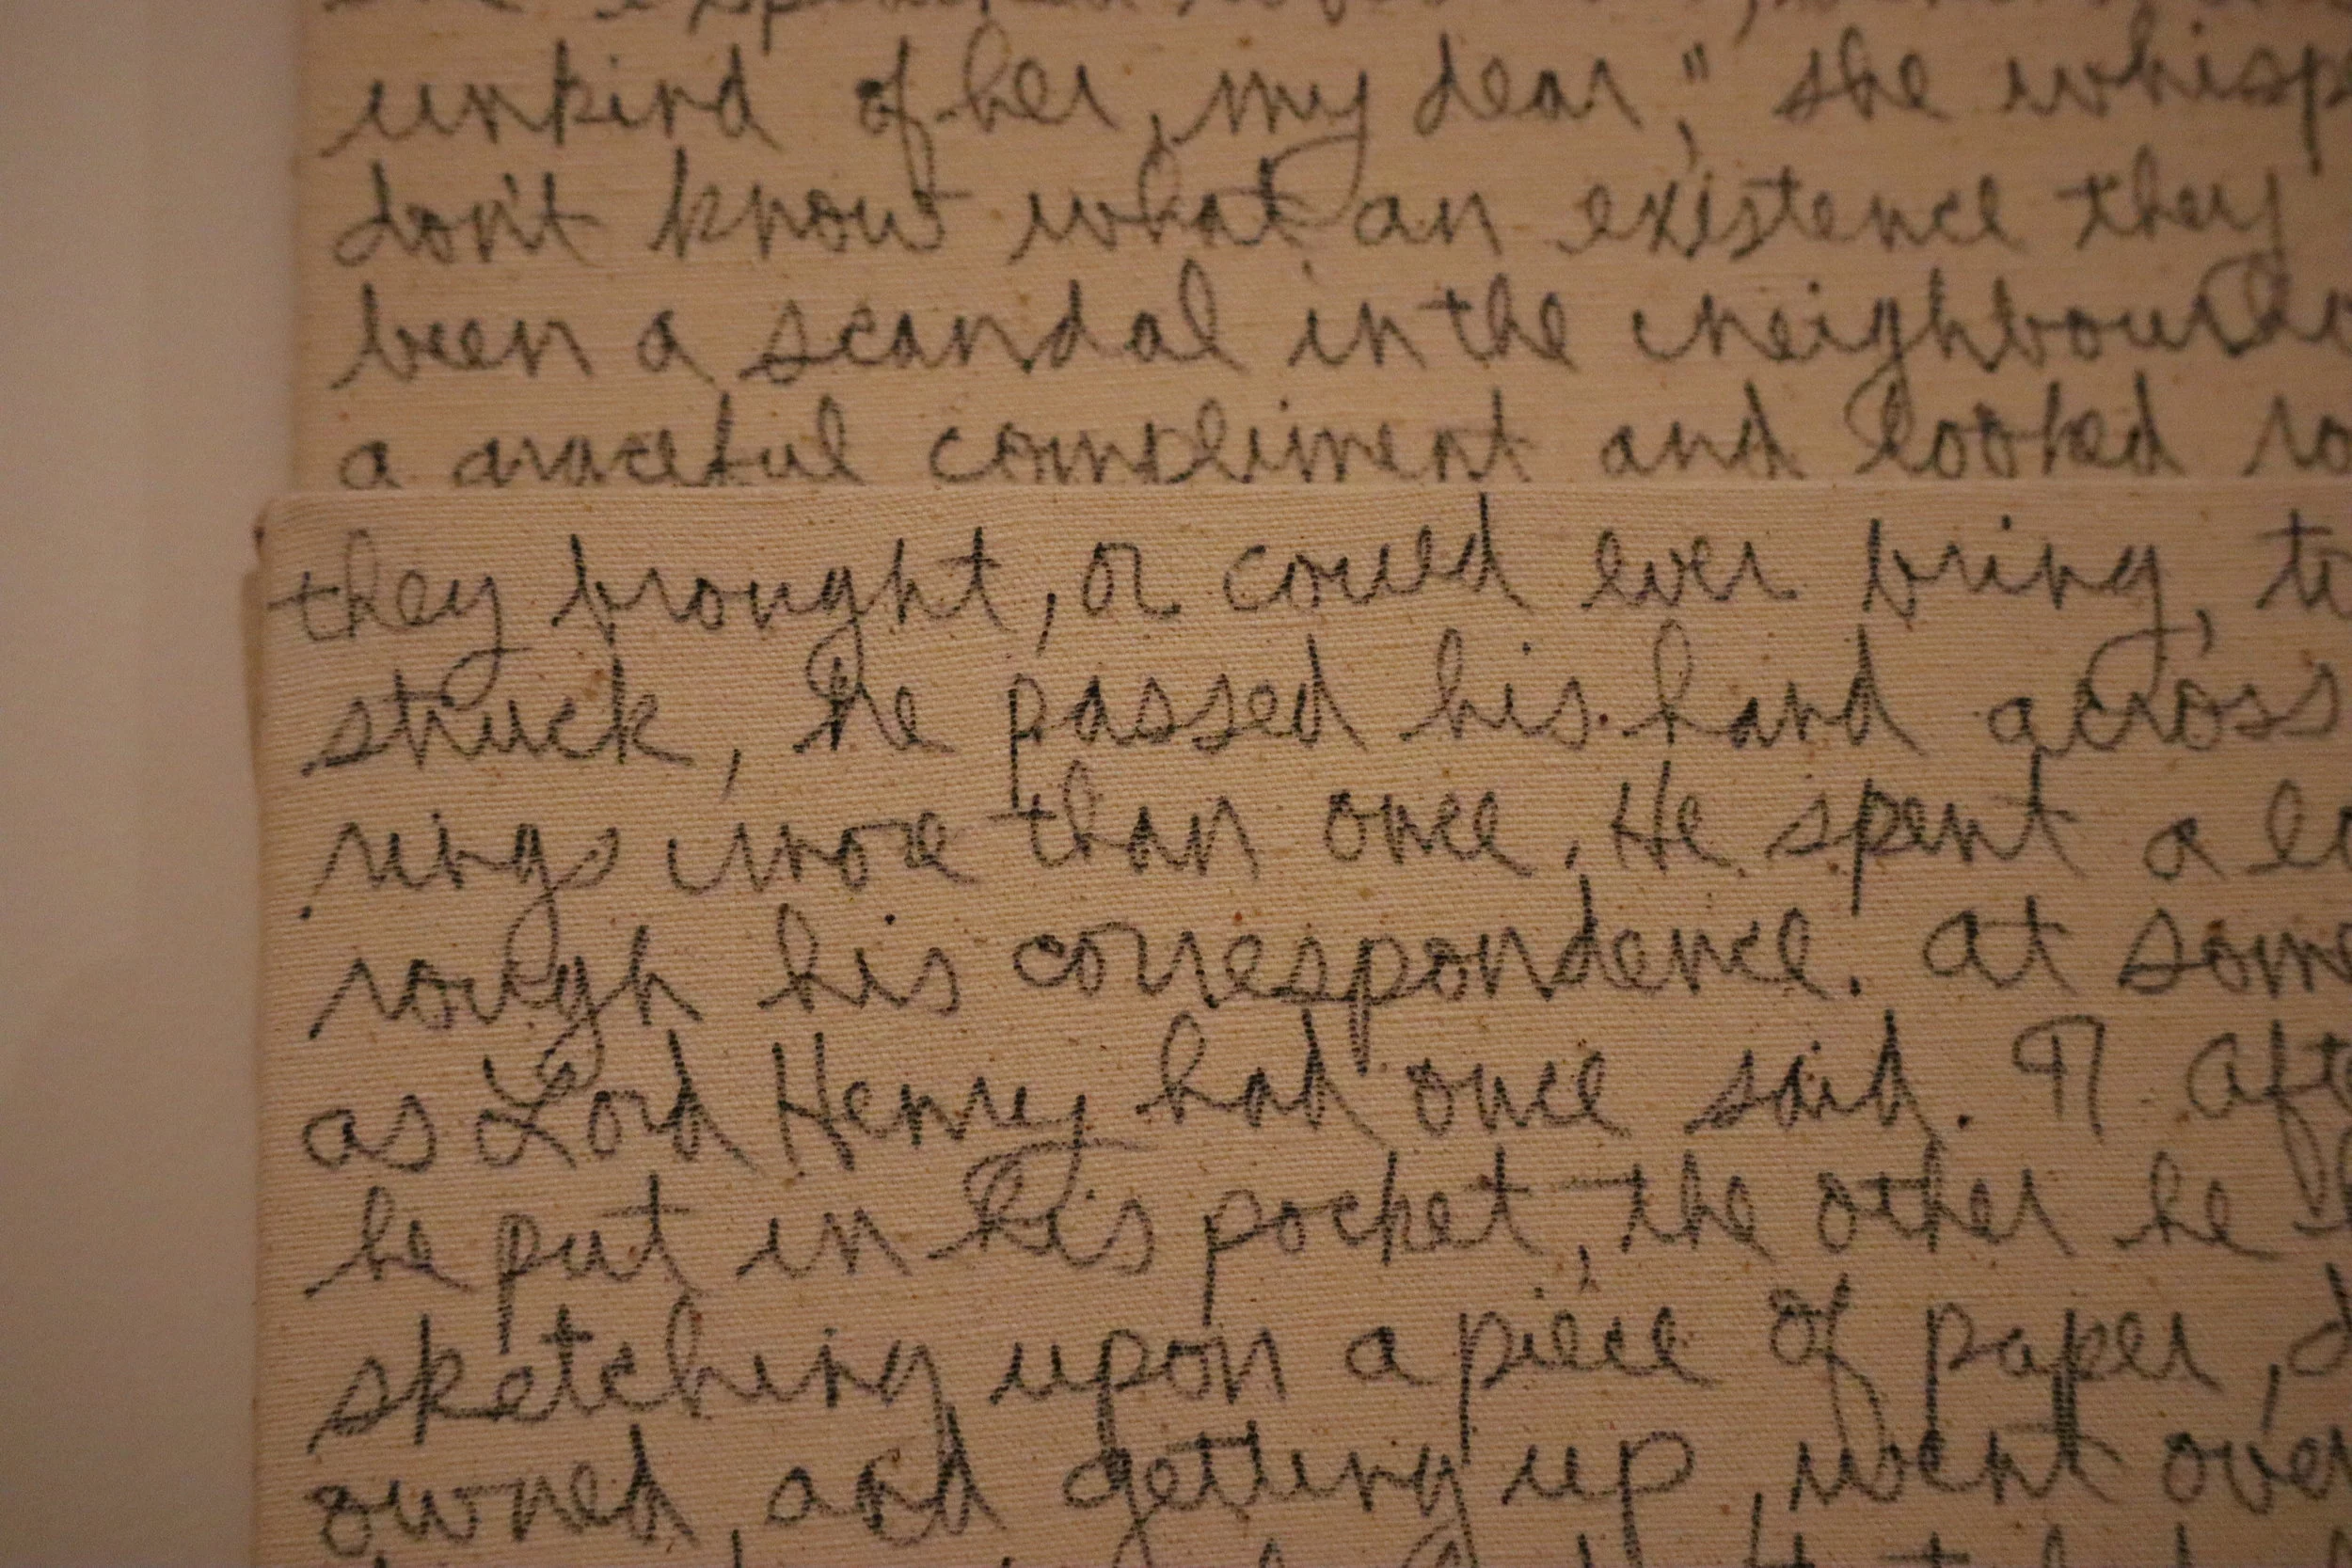 unkind of her, my dear," she whisp
don't know what an existence they
been a scandal in the neighbourh
a graceful compliment and looked ro
they brought, or could ever bring, ti
struck, he passed his hand across
rings more than once. He spent a lo
rough his correspondence. At some
as Lord Henry had once said. ¶ Afte
he put in his pocket, the other he
sketching upon a piece of paper, d
owned, and getting up, went over